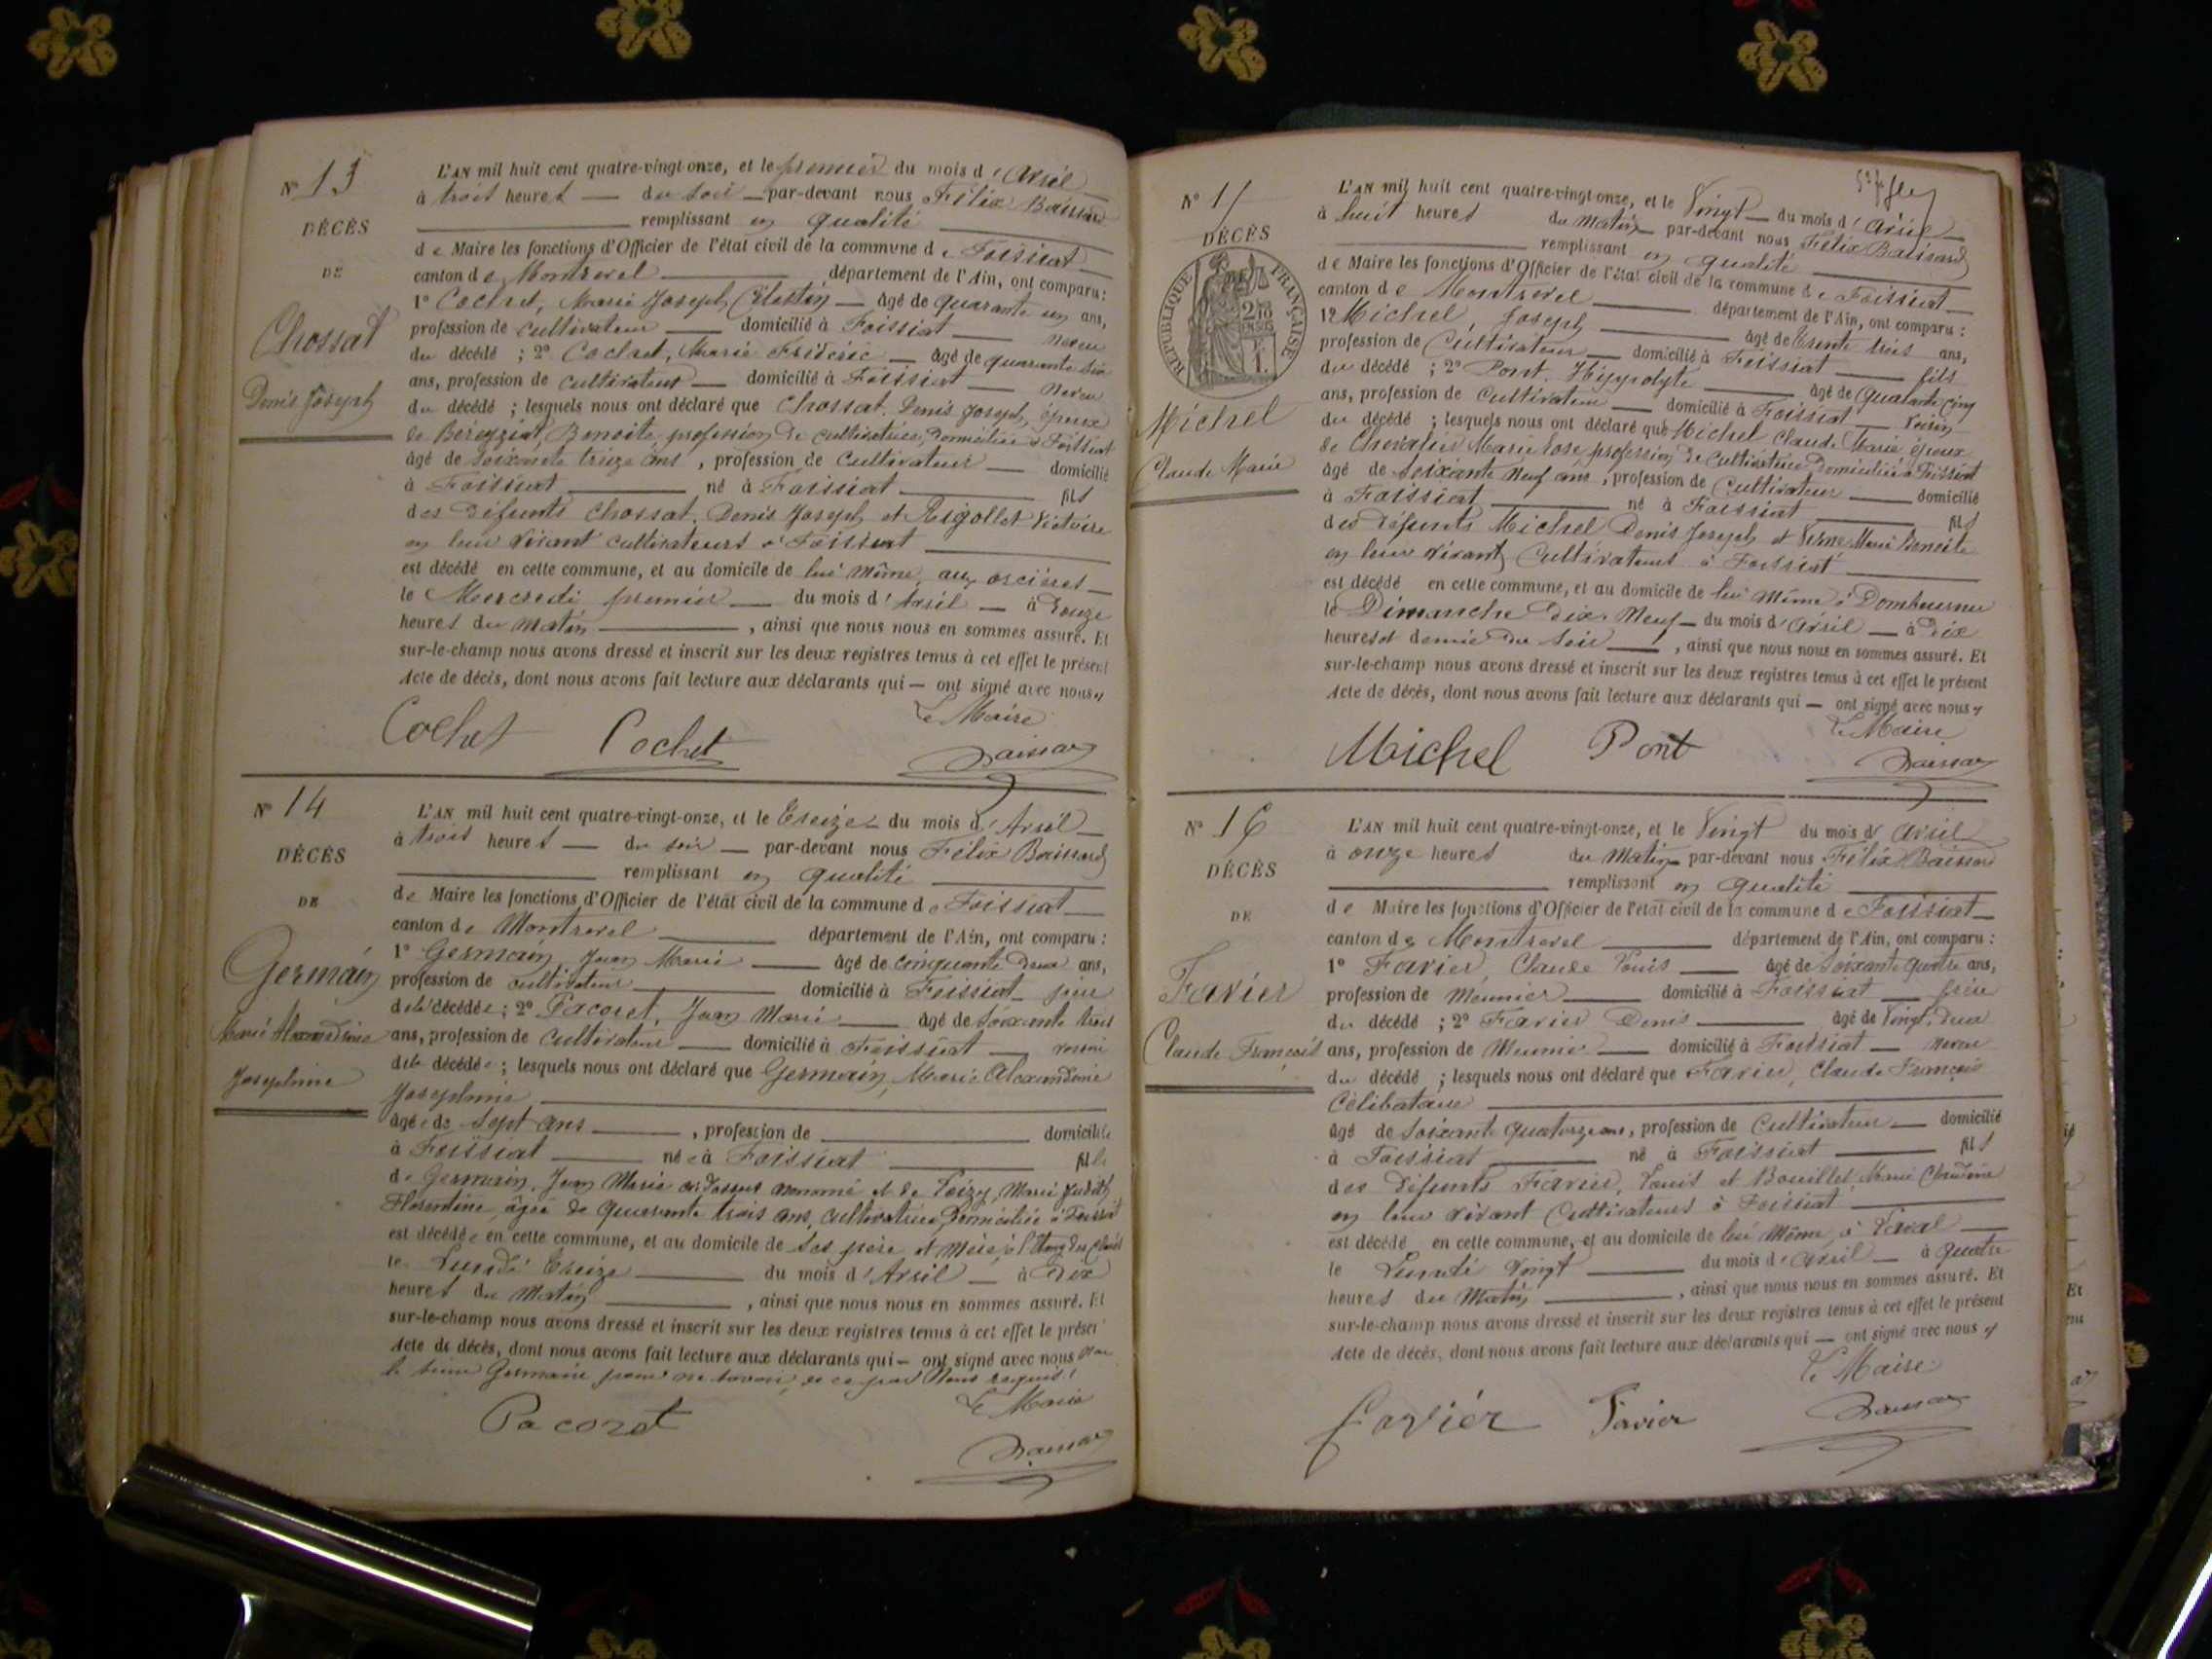 Nº 13
DÉCÈS
DE
Chossat
Denis Joseph
L'AN mil huit cent quatre-vingt-onze, et le premier du mois d'Avril
à trois heures du soir par-devant nous Félix Baissard
remplissant en qualité
de Maire les fonctions d'Officier de l'état civil de la commune de Foissiat
canton de Montrevel département de l'Ain, ont comparu :
1º Cochet, Marie Joseph Célestin âgé de quarante un ans,
profession de cultivateur domicilié à Foissiat neveu
du décédé ; 2º Cochet, Marie Frédéric âgé de quarante six
ans, profession de cultivateur domicilié à Foissiat neveu
du décédé ; lesquels nous ont déclaré que Chossat, Denis Joseph, époux
de Béreyziat, Benoite, profession de cultivatrice, domiciliée à Foissiat
âgé de soixante treize ans, profession de Cultivateur domicilié
à Foissiat né à Foissiat fils
des défunts Chossat, Denis Joseph et Rigollet Victoire
en leur vivant cultivateurs à Foissiat
est décédé en cette commune, et au domicile de lui même, aux
le Mercredi premier du mois d'Avril à douze
heures du matin, ainsi que nous nous en sommes assuré. Et
sur-le-champ nous avons dressé et inscrit sur les deux registres tenus à cet effet le présent
Acte de décès, dont nous avons fait lecture aux déclarants qui — ont signé avec nous
Le Maire
Cochet Cochet Baissard
Nº 14
DÉCÈS
DE
Germain
Marie Alexandrine
Josephine
L'AN mil huit cent quatre-vingt-onze, et le treize du mois d'Avril
à trois heures du soir par-devant nous Félix Baissard
remplissant en qualité
de Maire les fonctions d'Officier de l'état civil de la commune de Foissiat
canton de Montrevel département de l'Ain, ont comparu :
1º Germain, Jean Marie âgé de cinquante deux ans,
profession de cultivateur domicilié à Foissiat père
de la décédée ; 2º Pacoret, Jean Marie âgé de soixante trois
ans, profession de Cultivateur domicilié à Foissiat voisin
de la décédée ; lesquels nous ont déclaré que Germain, Marie Alexandrine
Josephine
âgée de sept ans, profession de domiciliée
à Foissiat née à Foissiat fille
de Germain, Jean Marie ci-dessus nommé et de Poizy, Marie Judith
Florentine, âgée de quarante trois ans, cultivatrice, domiciliée à Foissiat
est décédée en cette commune, et au domicile de ses père et mère, à l'Etang
le Lundi treize du mois d'Avril à dix
heures du matin, ainsi que nous nous en sommes assuré. Et
sur-le-champ nous avons dressé et inscrit sur les deux registres tenus à cet effet le présent
Acte de décès, dont nous avons fait lecture aux déclarants qui — ont signé avec nous
le sieur Germain pour ne savoir, de ce par nous requis.
Le Maire
Pacoret
Baissard
Nº 15
DÉCÈS
RÉPUBLIQUE FRANÇAISE
Michel
Claude Marie
L'AN mil huit cent quatre-vingt-onze, et le Vingt du mois d'Avril
à huit heures du matin par-devant nous Félix Baissard
remplissant en qualité
de Maire les fonctions d'Officier de l'état civil de la commune de Foissiat
canton de Montrevel département de l'Ain, ont comparu :
1º Michel, Joseph âgé de trente trois ans,
profession de Cultivateur domicilié à Foissiat fils
du décédé ; 2º Pont, Hyppolyte âgé de quarante cinq
ans, profession de Cultivateur domicilié à Foissiat voisin
du décédé ; lesquels nous ont déclaré que Michel Claude Marie époux
de Chevalier Marie Rose, profession de Cultivatrice domiciliée à Foissiat
âgé de soixante neuf ans, profession de Cultivateur domicilié
à Foissiat né à Foissiat fils
des défunts Michel Denis Joseph et Verne Marie Benoite
en leur vivant Cultivateurs à Foissiat
est décédé en cette commune, et au domicile de lui même à
le Dimanche dix-neuf du mois d'Avril à dix
heures et demie du soir, ainsi que nous nous en sommes assuré. Et
sur-le-champ nous avons dressé et inscrit sur les deux registres tenus à cet effet le présent
Acte de décès, dont nous avons fait lecture aux déclarants qui — ont signé avec nous
Le Maire
Michel Pont Baissard
Nº 16
DÉCÈS
DE
Favier
Claude François
L'AN mil huit cent quatre-vingt-onze, et le Vingt du mois d'Avril
à onze heures du Matin par-devant nous Félix Baissard
remplissant en qualité
de Maire les fonctions d'Officier de l'état civil de la commune de Foissiat
canton de Montrevel département de l'Ain, ont comparu :
1º Favier, Claude Louis âgé de soixante quatre ans,
profession de Meunier domicilié à Foissiat frère
du décédé ; 2º Favier Denis âgé de vingt-deux
ans, profession de Meunier domicilié à Foissiat neveu
du décédé ; lesquels nous ont déclaré que Favier, Claude François
Célibataire
âgé de soixante quatorze ans, profession de Cultivateur domicilié
à Foissiat né à Foissiat fils
des défunts Favier, Louis et Bouillet, Marie Claudine
en leur vivant Cultivateurs à Foissiat
est décédé en cette commune, et au domicile de lui même, à Laval
le Lundi vingt du mois d'Avril à quatre
heures du Matin, ainsi que nous nous en sommes assuré. Et
sur-le-champ nous avons dressé et inscrit sur les deux registres tenus à cet effet le présent
Acte de décès, dont nous avons fait lecture aux déclarants qui — ont signé avec nous
Le Maire
Favier Favier Baissard